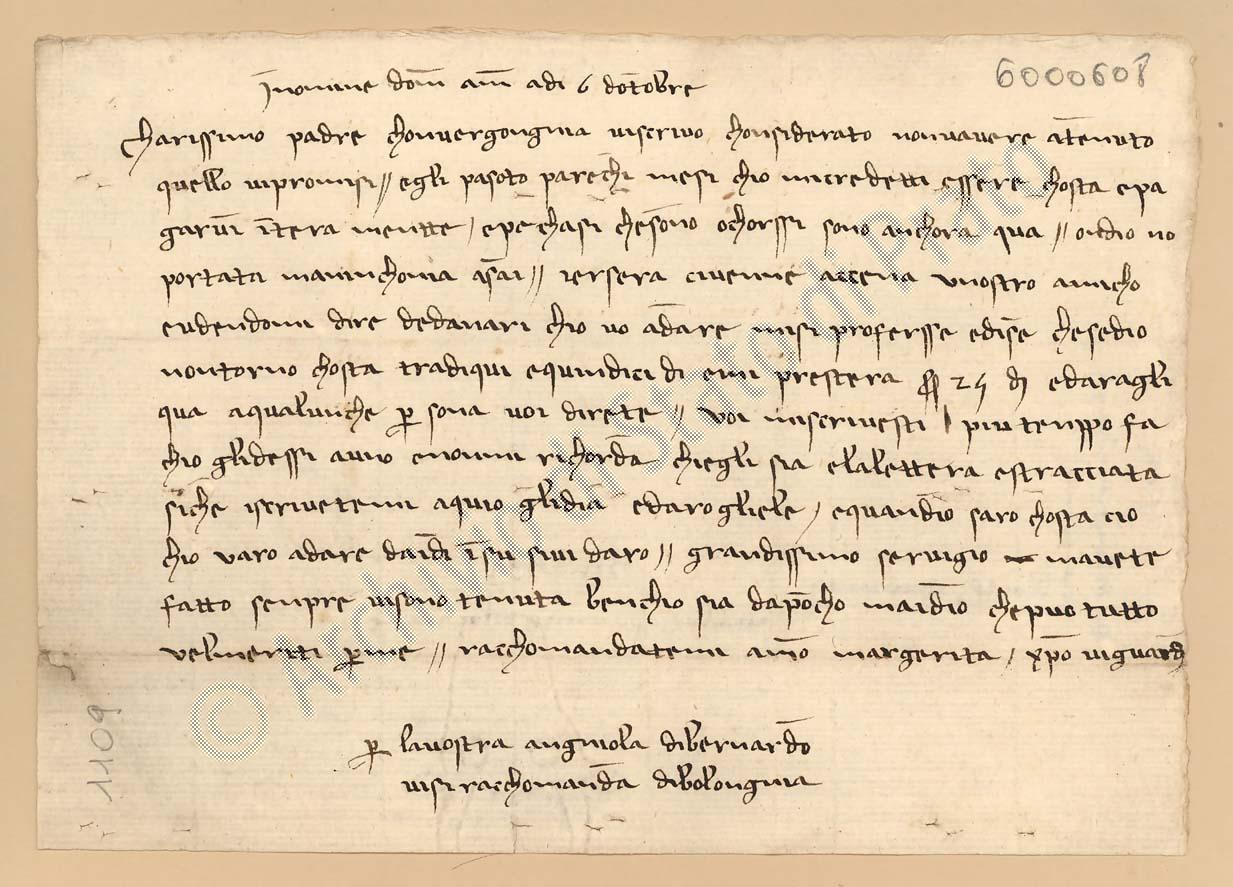 6000608
In nomine dom am adi 6 dottobre
Charissimo padre chonvergongnia viscrivo chonsiderato nonvavere atenuto
quello vipromisi // egli pasoto parechi mesi chio micredetti essere chosta epa
garvi itera mentte / epe chasi chesono ochorssi sono anchora qua // ondio no
portata maninchonia asai // iersera civenne accena vnostro amicho
eudendomi dire dedanari chio vo adare misi profersse edise chesedio
nontorno chosta tradiqui equindici di emi prestera 25 edaragli
qua aqualunche per sona voi direte // voi miscrivesti piu tenppo fa
chio glidessi enonmi richorda chiegli sia elalettera estracciata
siche iscrivetemi aquio glidia edarogliele / equandio saro chosta cio
chio varo adare daidi isu sivi daro // grandissimo servigio mavete
fatto senpre visono tenuta benchio sia dapocho maidio chepuo tutto
velmeriti per me // racchomandatemi amo margerita / xpo viguardi
per lavostra angniola dibernardo
visiracchomanda dibolongnia
1109
© Archivio di Stato di Prato